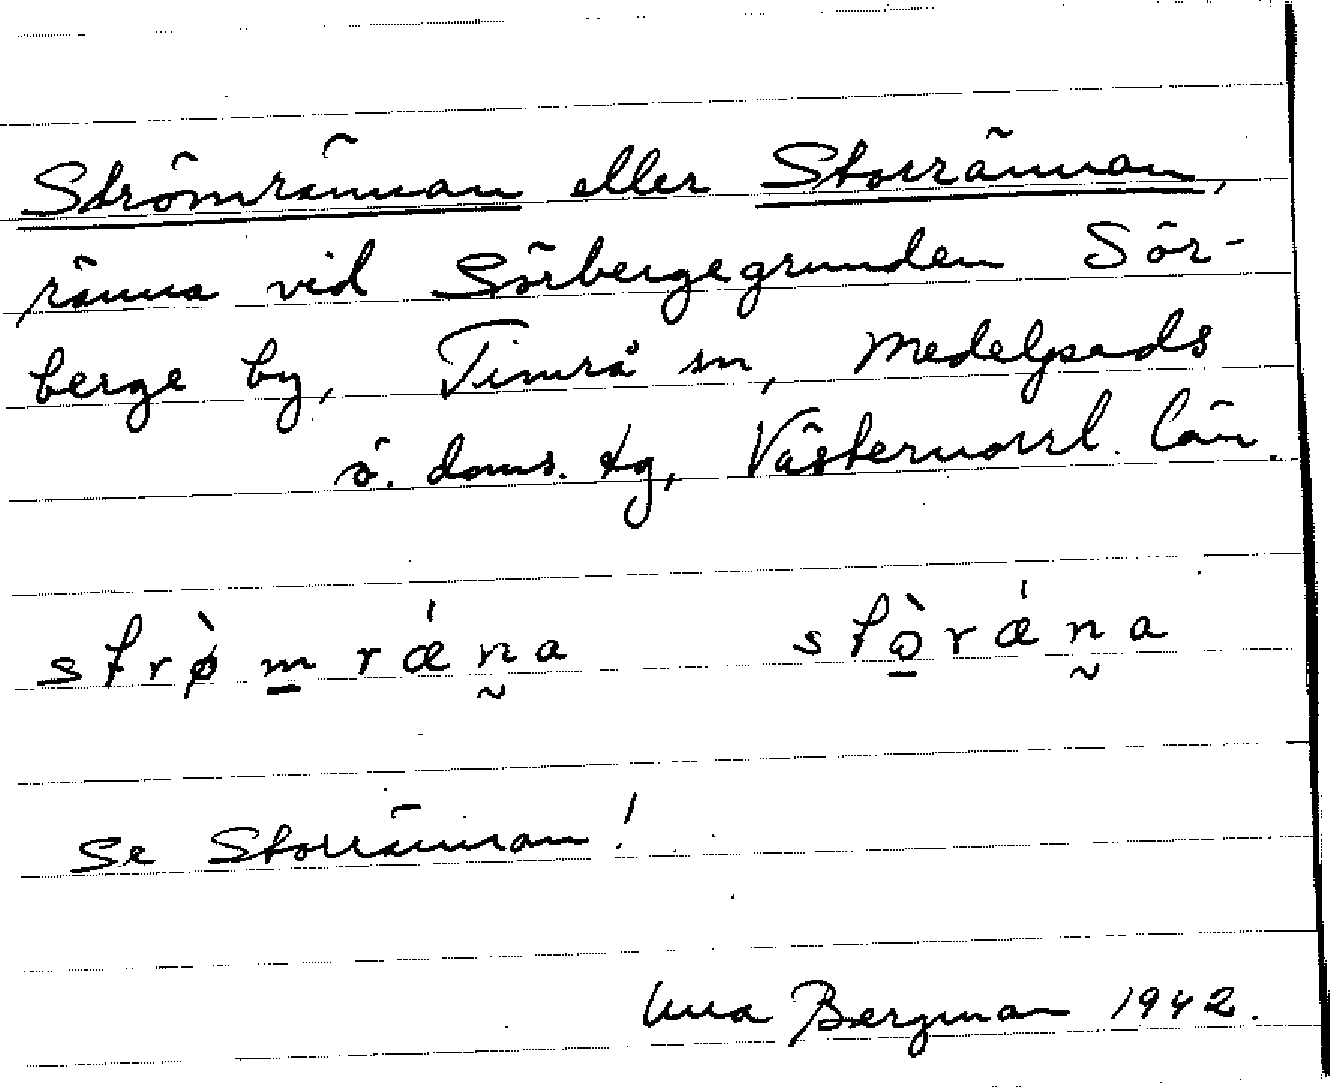 Strömrännan eller Storrännan,
ränna vid Sörbergegrunden Sör-
berge by, Timrå sn, Medelpads
ö. doms. tg, Västernorrl. län.
strø̀m̲ rǽn̰a stò̲rǽn̰a
Se Storrännan!
Bergman 1942.